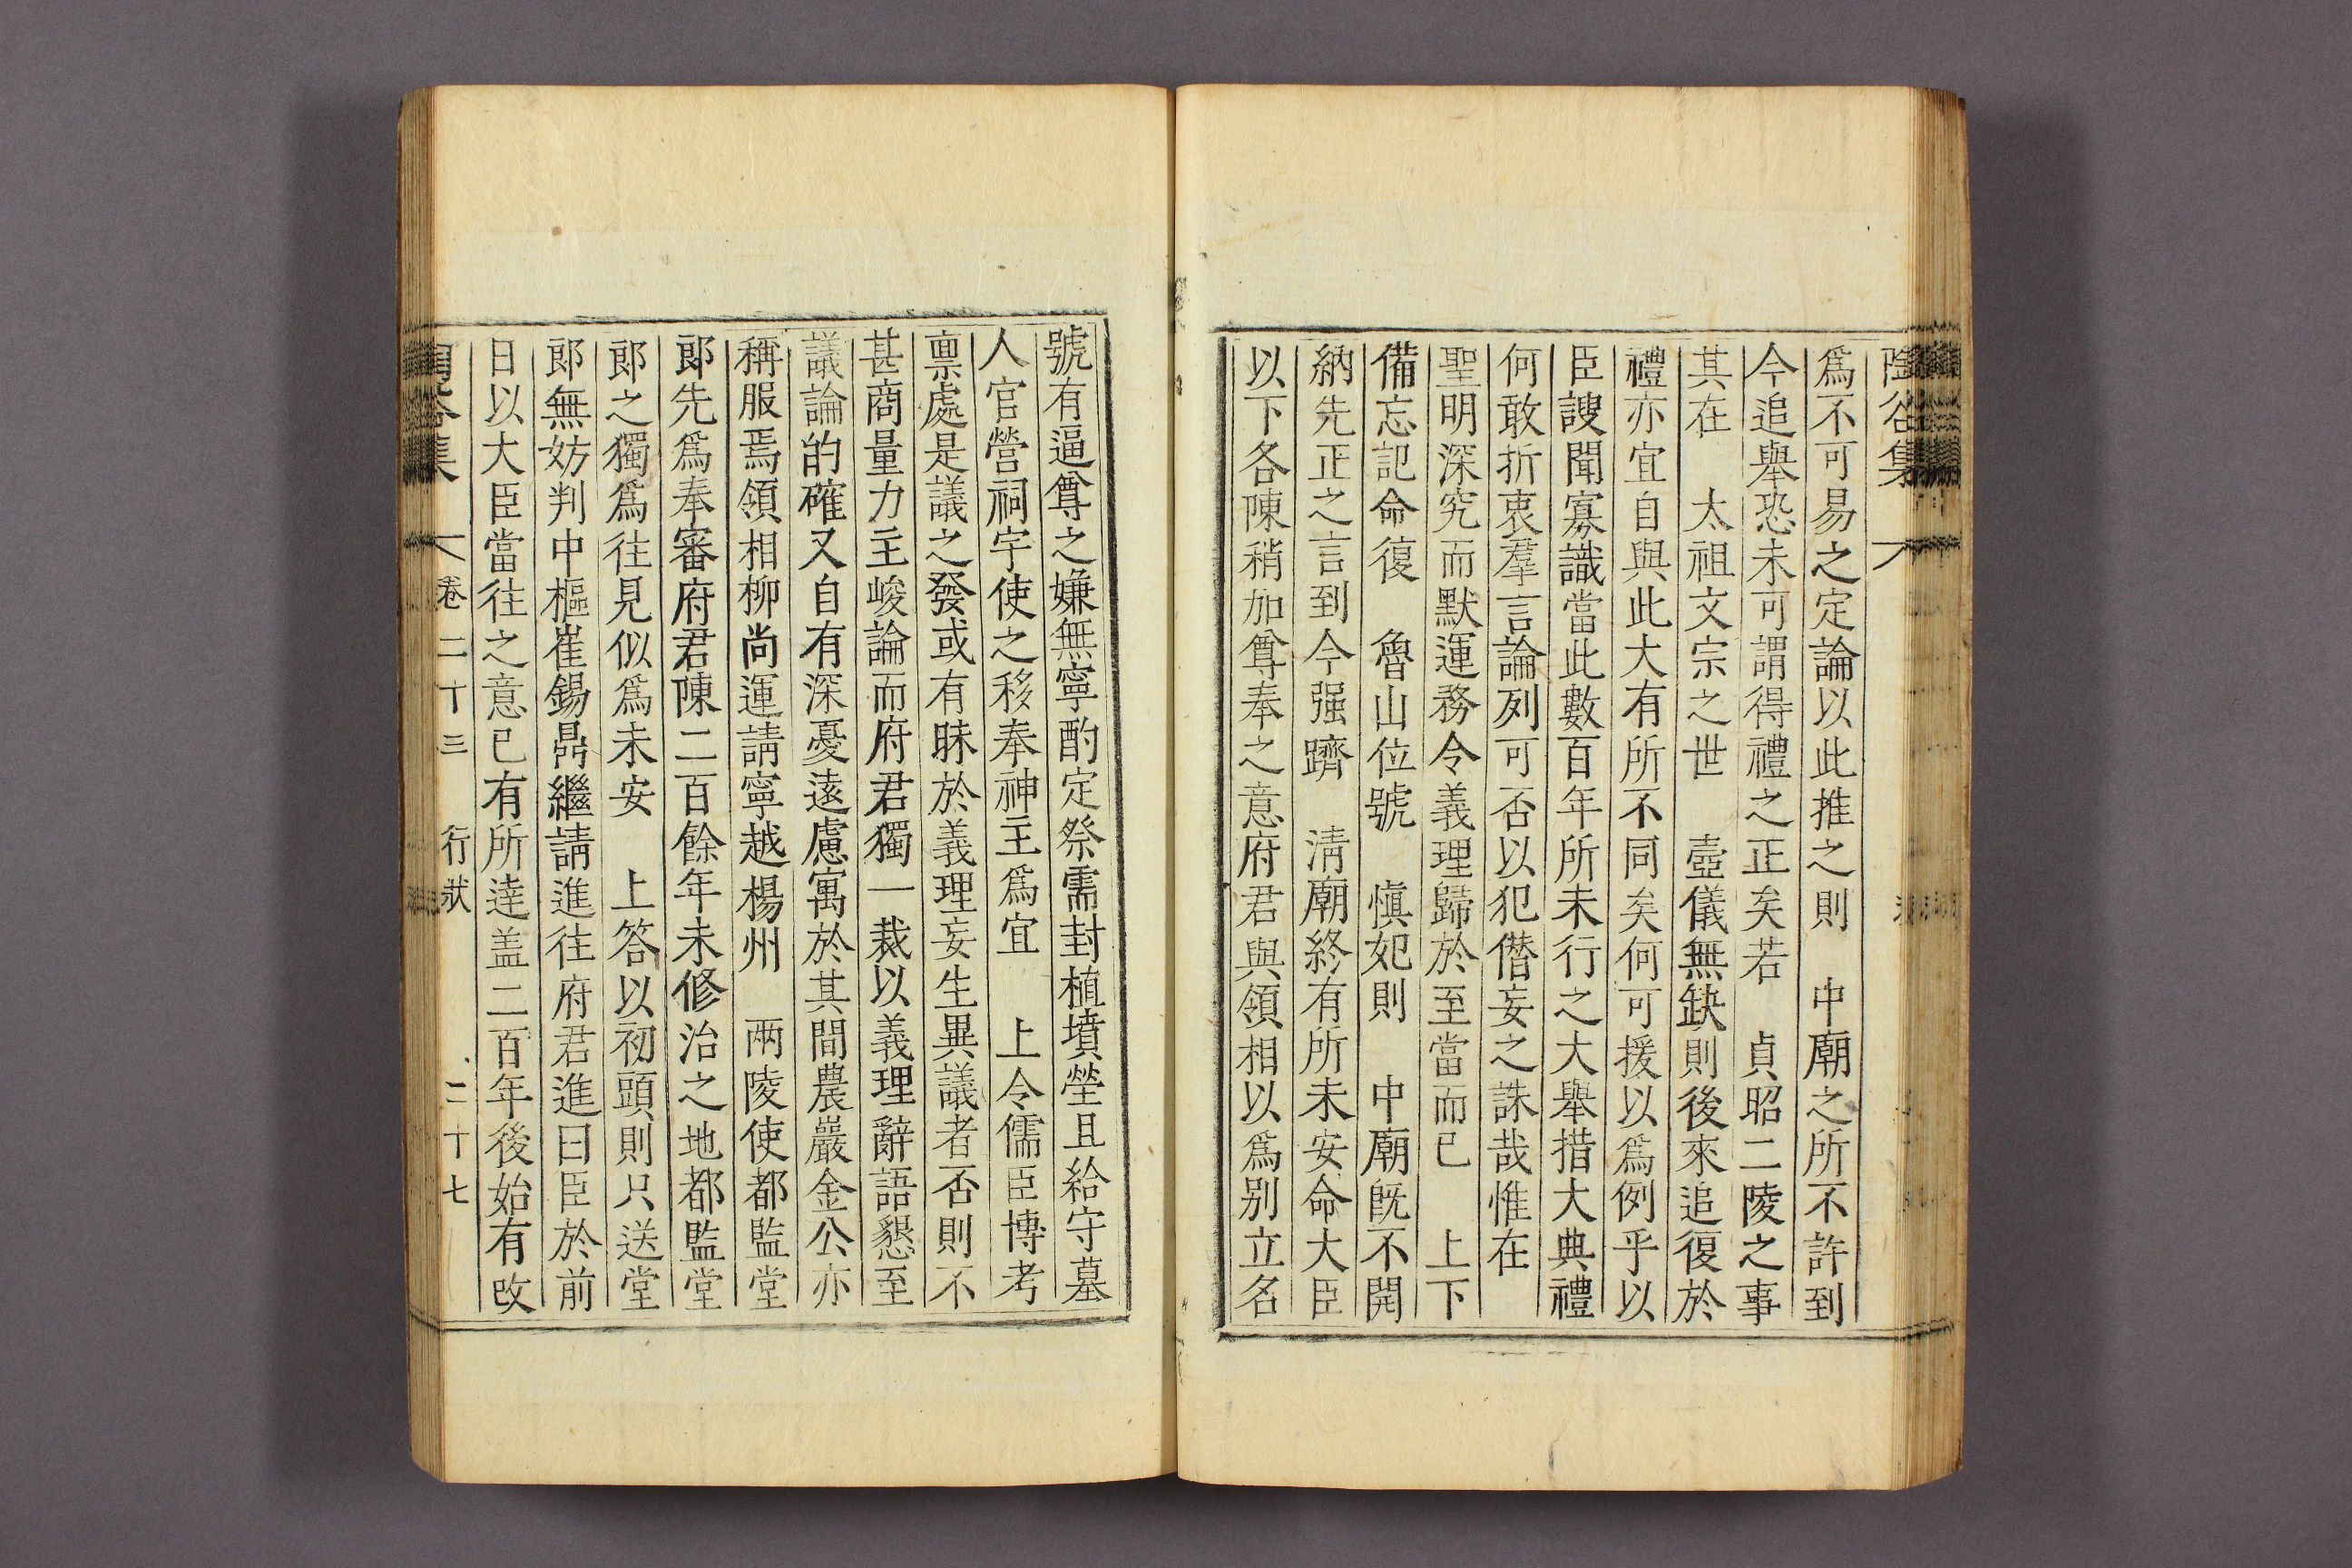 陶谷集
爲不可易之定論以此推之則 中廟之所不許到
今追舉恐未可謂得禮之正矣若 貞昭二陵之事
其在 太祖文宗之世 壼儀無缺則後來追復於
禮亦宜自與此大有所不同矣何可援以爲例乎以
臣謏聞寡識當此數百年所未行之大舉措大典禮
何敢折衷羣言論列可否以犯僭妄之誅哉惟在
聖明深究而默運務令義理歸於至當而已 上下
備忘記命復 魯山位號 愼妃則 中廟旣不開
納先正之言到今强躋 淸廟終有所未安命大臣
以下各陳稍加尊奉之意府君與領相以爲别立名
號有逼尊之嫌無寧酌定祭需封植墳塋且給守墓
人官營祠宇使之移奉神主爲宜 上令儒臣博考
禀處是議之發或有昧於義理妄生異議者否則不
甚商量力主峻論而府君獨一裁以義理辭語懇至
議論的確又自有深憂遠慮寓於其間農巖金公亦
稱服焉領相柳尚運請寧越楊州 兩陵使都監堂
郞先爲奉審府君陳二百餘年未修治之地都監堂
郞之獨爲往見似爲未安 上答以初頭則只送堂
郞無妨判中樞崔錫鼎繼請進往府君進曰臣於前
日以大臣當往之意已有所達盖二百年後始有改
集 卷二十三 行狀 二十七